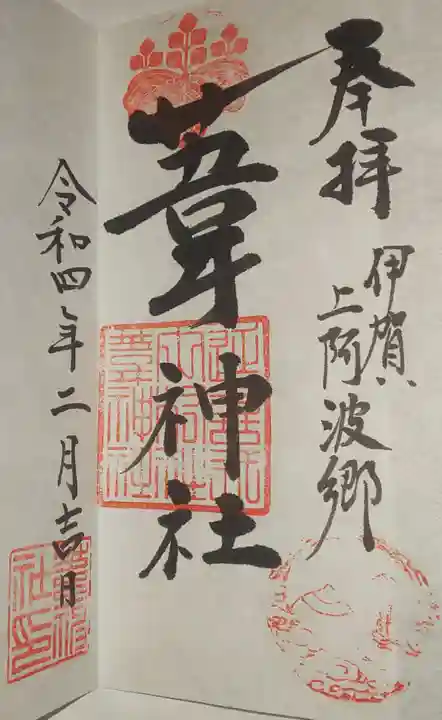 奉拝
伊賀
上阿波郷
葦神社
令和四年二月吉日
葦神社